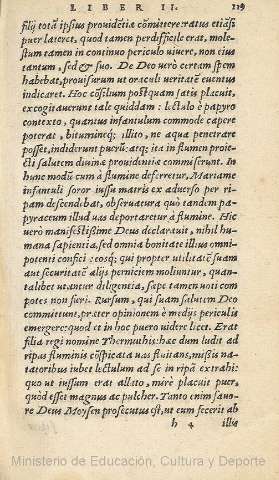 LIBER II. 119
filij totā ipsius prouidētia cōmittere: ratus etiāsi
puer lateret, quod tamen perdifficile erat, mole-
stum tamen in continuo periculo viuere, non eius
tantum, sed & suo. De Deo verò certam spem
habebat, prouisurum ut oraculi veritatē euentus
indicaret. Hoc cōsilium postquam satis placuit,
excogitauerunt tale quiddam: lectulo è papyro
contexto, quantus infantulum commode capere
poterat, bitumineq; illito, ne aqua penetrare
posset, indiderunt puerū: atq; ita in flumen proie-
cti salutem diuinæ prouidentiæ commiserunt. In
hunc modū cum à flumine deferretur, Mariame
infantuli soror iussu matris ex aduerso per ri-
pam descendebat, obseruatura quò tandem pa-
pyraceum illud uas deportaretur à flumine. Hic
verò manifestissime Deus declarauit, nihil hu-
mana sapientia, sed omnia bonitate illius omni-
potenti confici: eosq; qui propter utilitatē suam
aut securitatē alijs perniciem moliuntur, quan-
talibet utantur diligentia, sæpe tamen uoti com
potes non fieri. Rursum, qui suam salutem Deo
committunt, præter opinionem è medijs periculis
emergere: quod et in hoc puero videre licet. Erat
filia regi nomine Thermuthis: hæc dum ludit ad
ripas fluminis cōspicata uas fluitans, missis na-
tatoribus iubet lectulum ad se in ripā extrahi:
quo ut iussum erat allato, mirè placuit puer,
quòd esset magnus ac pulcher. Tanto enim fauo-
re Deus Moysen prosecutus est, ut eum fecerit ab
h 4 illis
Ministerio de Educación, Cultura y Deporte